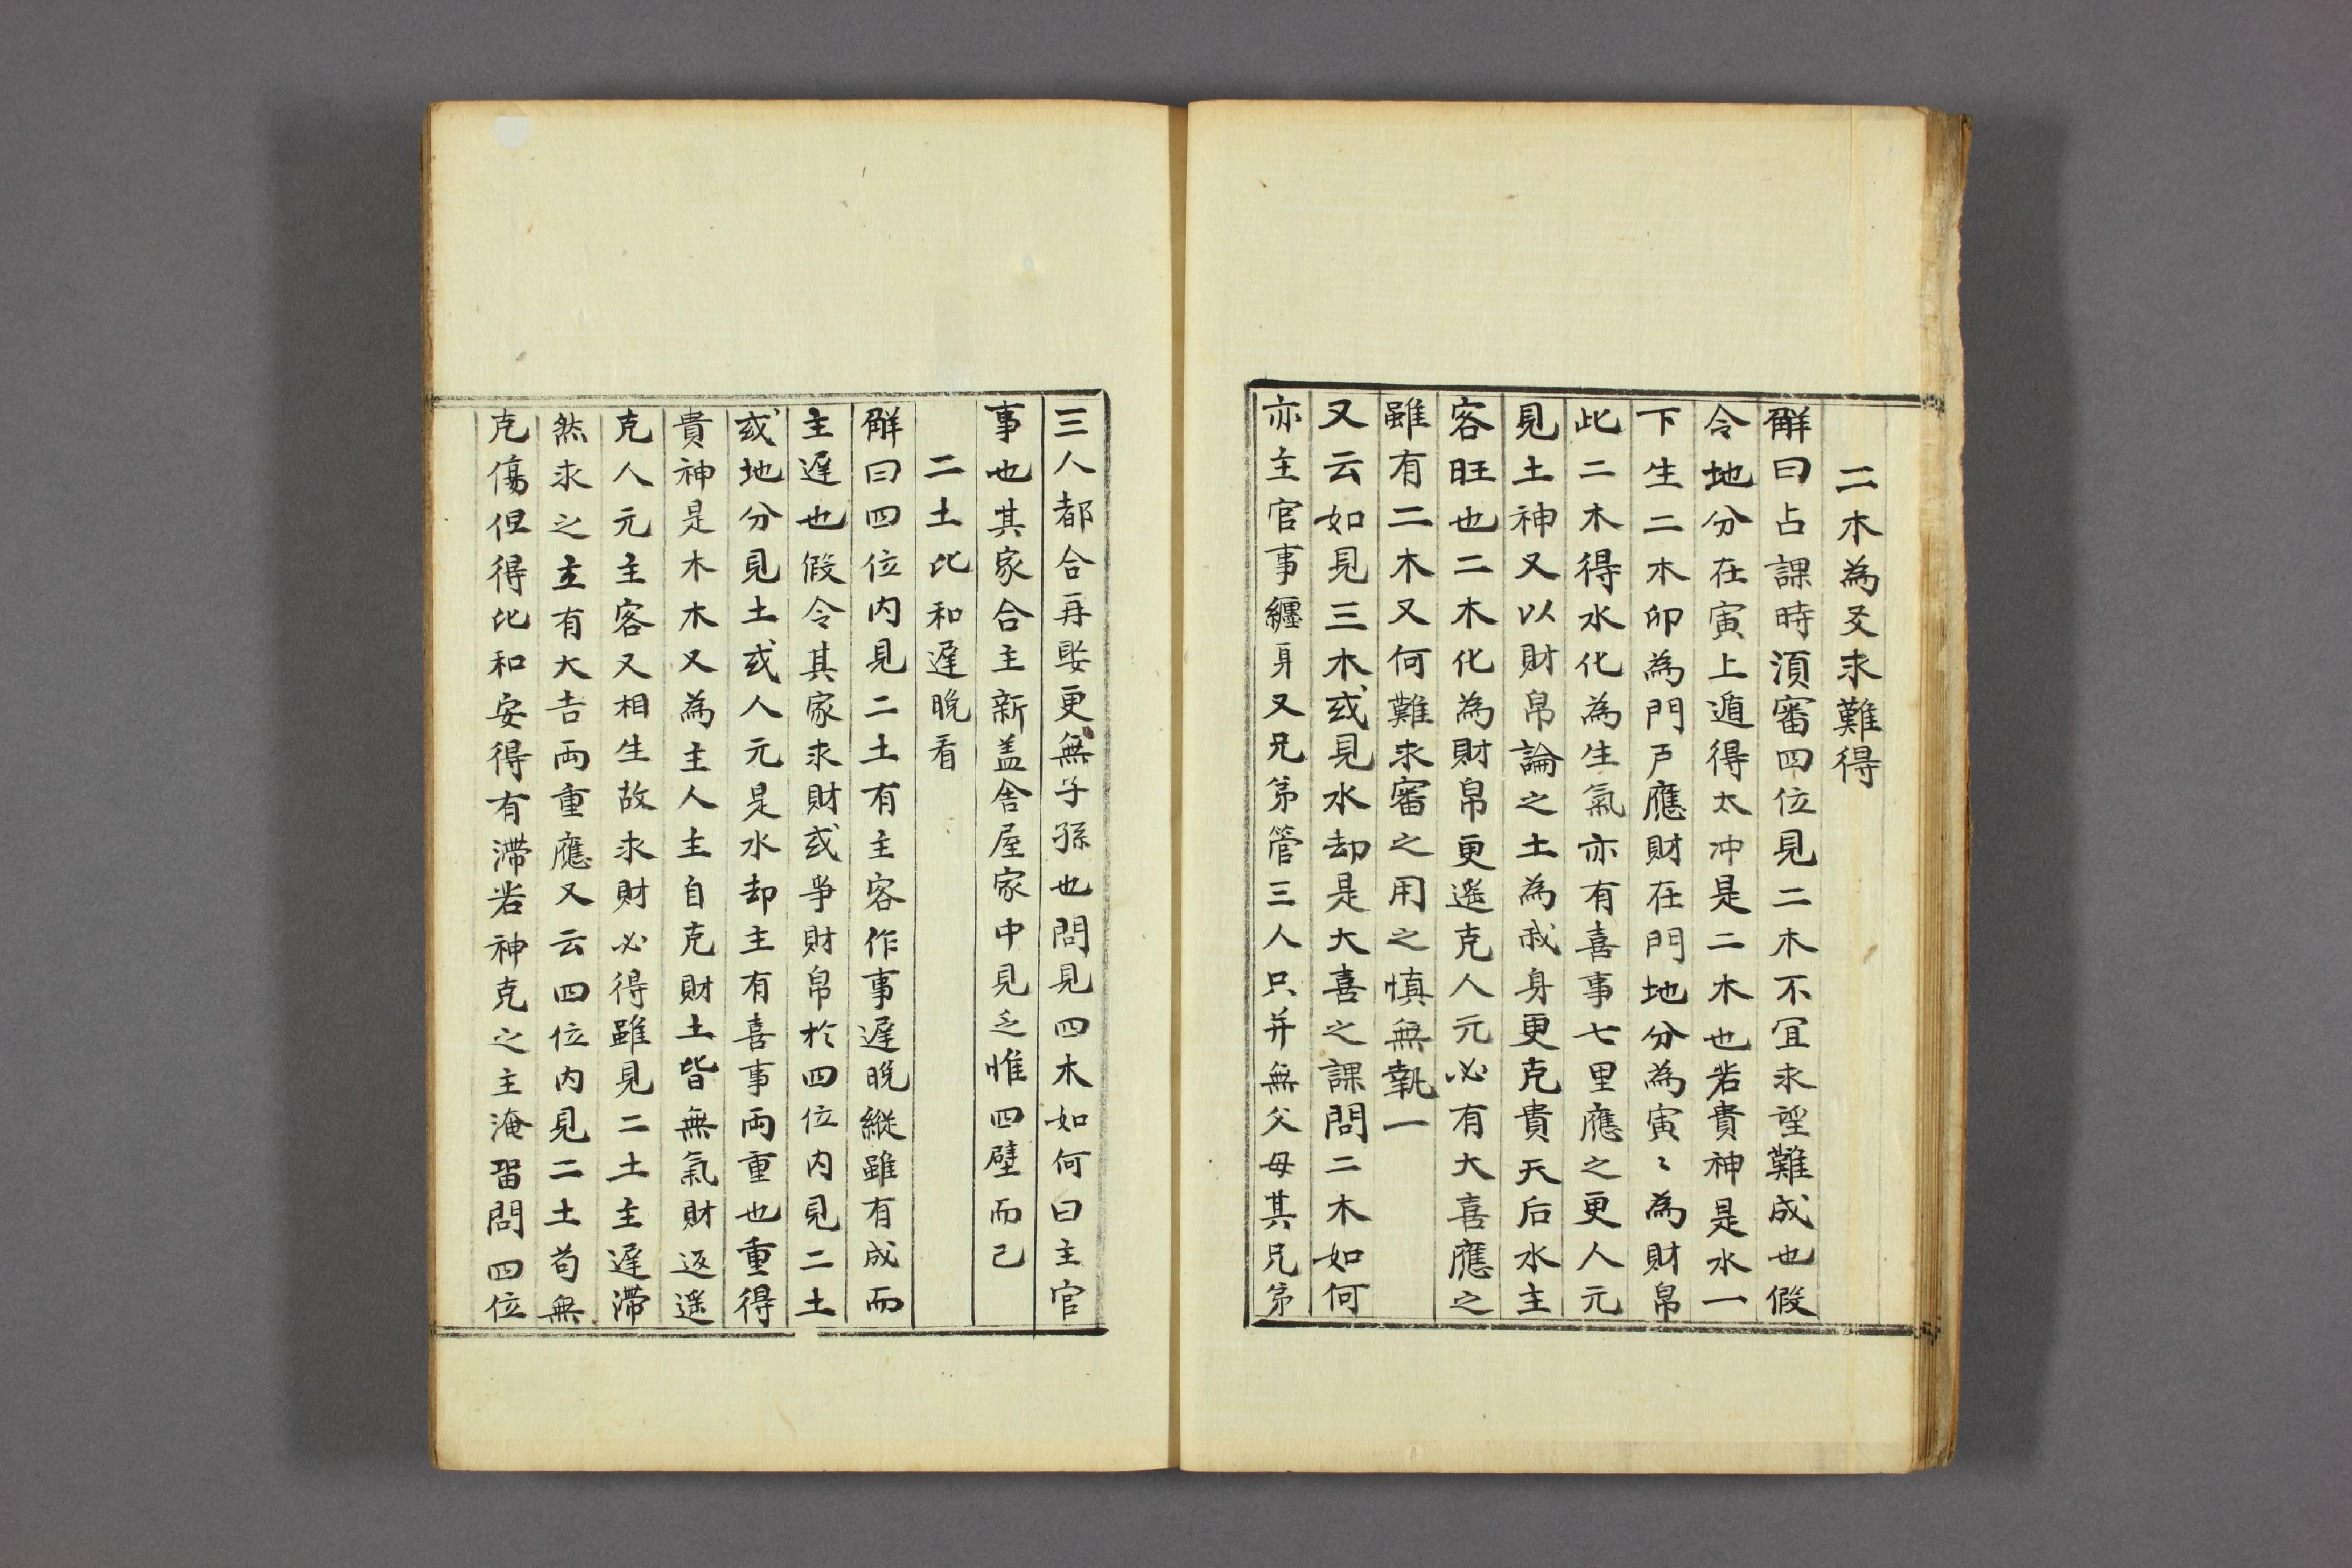 二木為爻求難得
觧曰占課時湏審四位見二木不冝求望難成也假
令地分在寅上遁得太冲是二木也若貴神是水一
下生二木卯為門戸應財在門地分為寅〻為財帛
此二木得水化為生氣亦有喜事七里應之更人元
見土神又以財帛論之土為我身更克貴天后水主
客旺也二木化為財帛更遥克人元必有大喜應之
雖有二木又何難求審之用之慎無執一
又云如見三木或見水却是大喜之課問二木如何
亦主官事纒身又兄弟管三人只并無父母其兄弟
三人都合再娶更無子孫也問見四木如何曰主官
事也其家合主新盖舎屋家中見乏惟四壁而已
二土比和遲晚看
觧曰四位内見二土有主客作事遲晚縱雖有成而
主遲也假令其家求財或爭財帛於四位内見二土
或地分見土或人元是水却主有喜事両重也重得
貴神是木木又為主人主自克財土皆無氣財返遥
克人元主客又相生故求財必得雖見二土主遲滯
然求之主有大吉両重應又云四位内見二土苟無
克傷但得比和安得有滯若神克之主淹留問四位